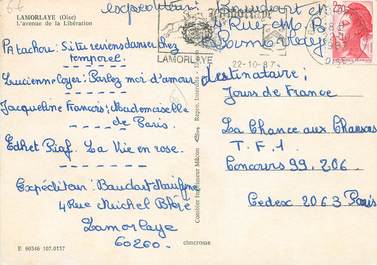 LAMORLAYE (Oise)
L'avenue de la Libération
Patachou: Si tu reviens danser chez
temporel.
Lucienne Boyer: Parlez moi d'amour
Jacqueline François: Mademoiselle
de Paris.
Edhet Piaf. La Vie en rose.
Expéditeur: Baudart
4 Rue Michel
Lamorlaye
60260.
E 60346 107.0157
cimcrosne
Combier Imprimeur Mâcon
expediteur:
4 Rue M.
Lamorlaye
LAMORLAYE
22-10-87
OISE
2,20
destinataire;
Jours de France
La Chance aux Chansons
T.F.1
Concours 99.206
Cedex 2063 Paris